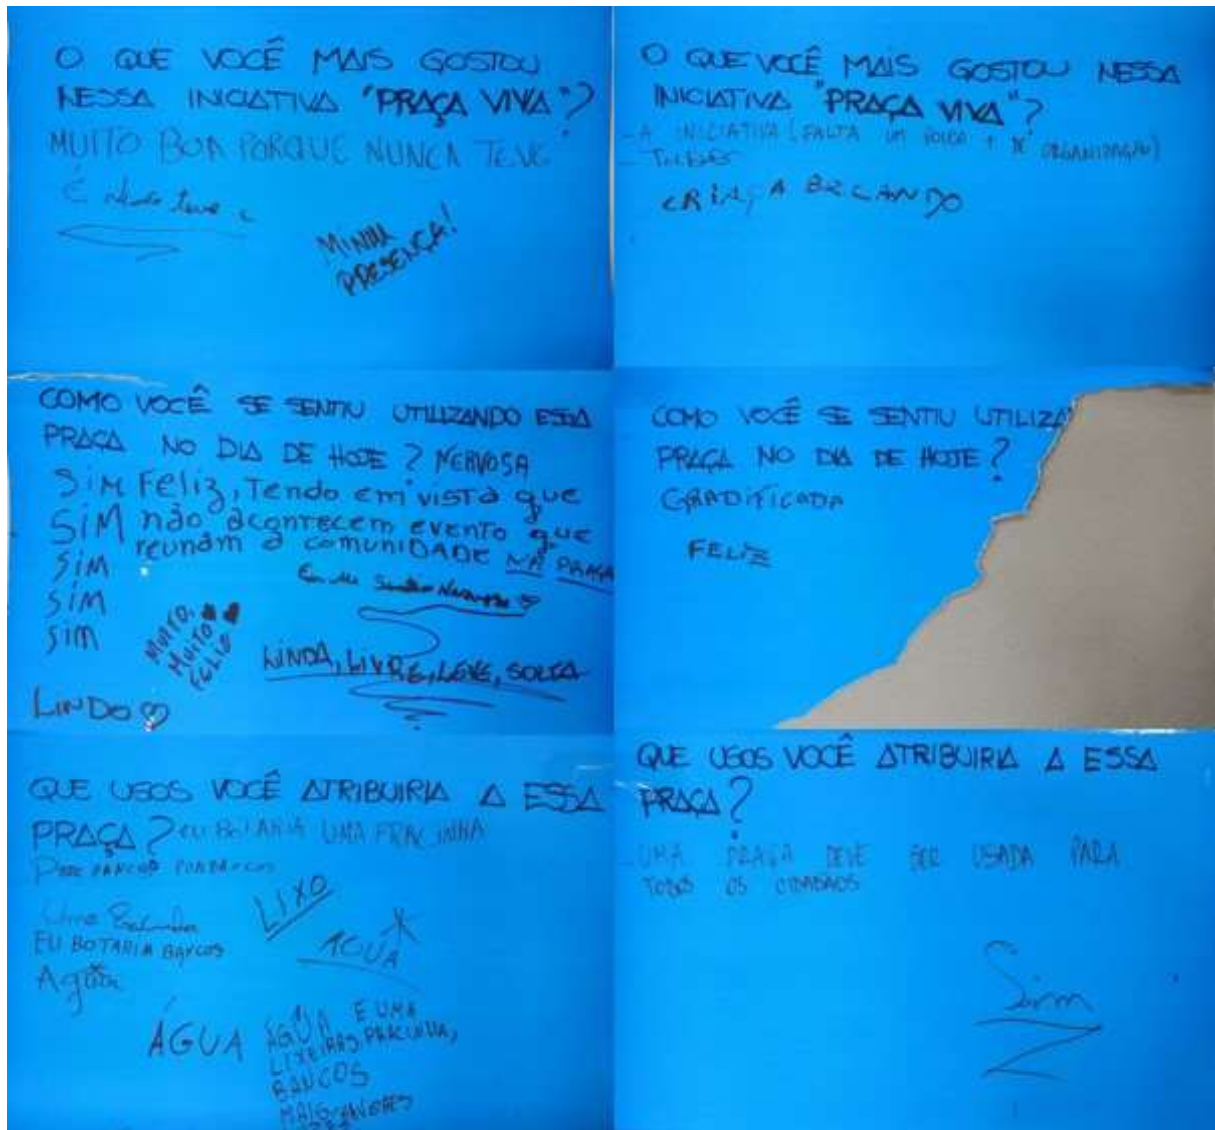 O QUE VOCÊ MAIS GOSTOU
NESSA INICIATIVA "PRAÇA VIVA"?
MUITO BOA PORQUE NUNCA TEVE
É teve
MINHA
PRESENÇA!
O QUE VOCÊ MAIS GOSTOU NESSA
INICIATIVA "PRAÇA VIVA"?
- A INICIATIVA (FALTA UM POUCO + DE ORGANIZAÇÃO)
CRIAÇA BRLANDO
COMO VOCÊ SE SENTIU UTILIZANDO ESSA
PRAÇA NO DIA DE HOJE? NERVOSA
SIM Feliz, Tendo em vista que
SIM não acontecem evento que
reunam a comunidade NA PRAÇA
SIM
SIM
SIM
MUITO,
MUITO
FELIZ
LINDA, LIVRE, LEVE, SOLTA
LINDO
COMO VOCÊ SE SENTIU UTILIZA
PRAÇA NO DIA DE HOJE?
GRADIFICADA
FELIZ
QUE USOS VOCÊ ATRIBUIRIA A ESSA
PRAÇA? EU BOTARIA UMA PRACINHA
LIXO
Uma
EU BOTARIA BANCOS
AGUA
Agua
ÁGUA
ÁGUA E UMA
LIXEIRAS, PRACINHA,
BANCOS
MAIS ARVORES
QUE USOS VOCÊ ATRIBUIRIA A ESSA
PRAÇA?
- UMA PRAÇA DEVE SER USADA PARA
TODOS OS CIDADÃOS
Sim